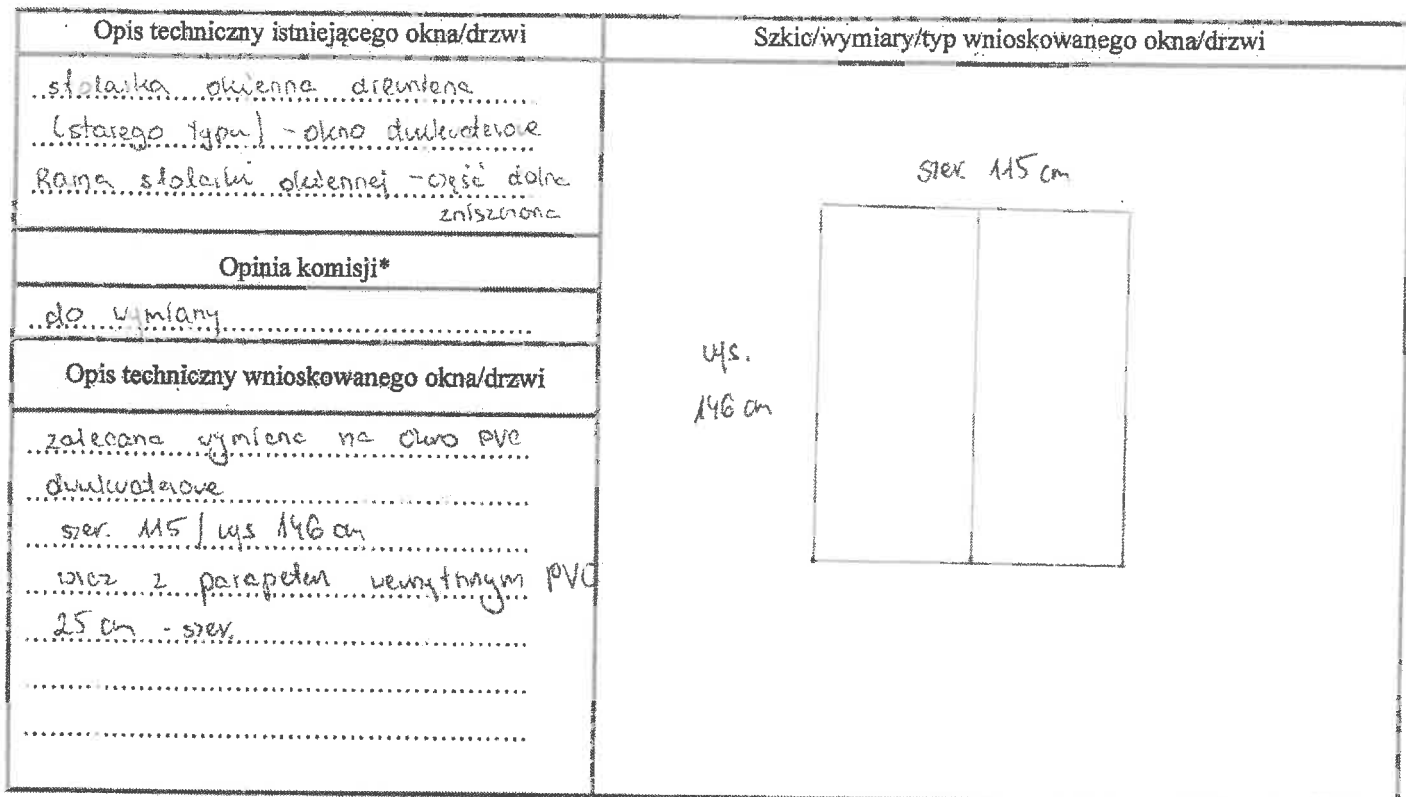 Opis techniczny istniejącego okna/drzwi
stolarka okienna drewniana
(starego typu) - okno dwukwaterowe
Rama stolarki okiennej - część dolna
zniszczona
Opinia komisji*
do wymiany
Opis techniczny wnioskowanego okna/drzwi
zalecana wymiana na okno PVC
dwukwaterowe
szer. 115 / wys 146 cm
wraz z parapetem wewnętrznym PVC
25 cm - szer.
Szkic/wymiary/typ wnioskowanego okna/drzwi
szer. 115 cm
wys.
146 cm